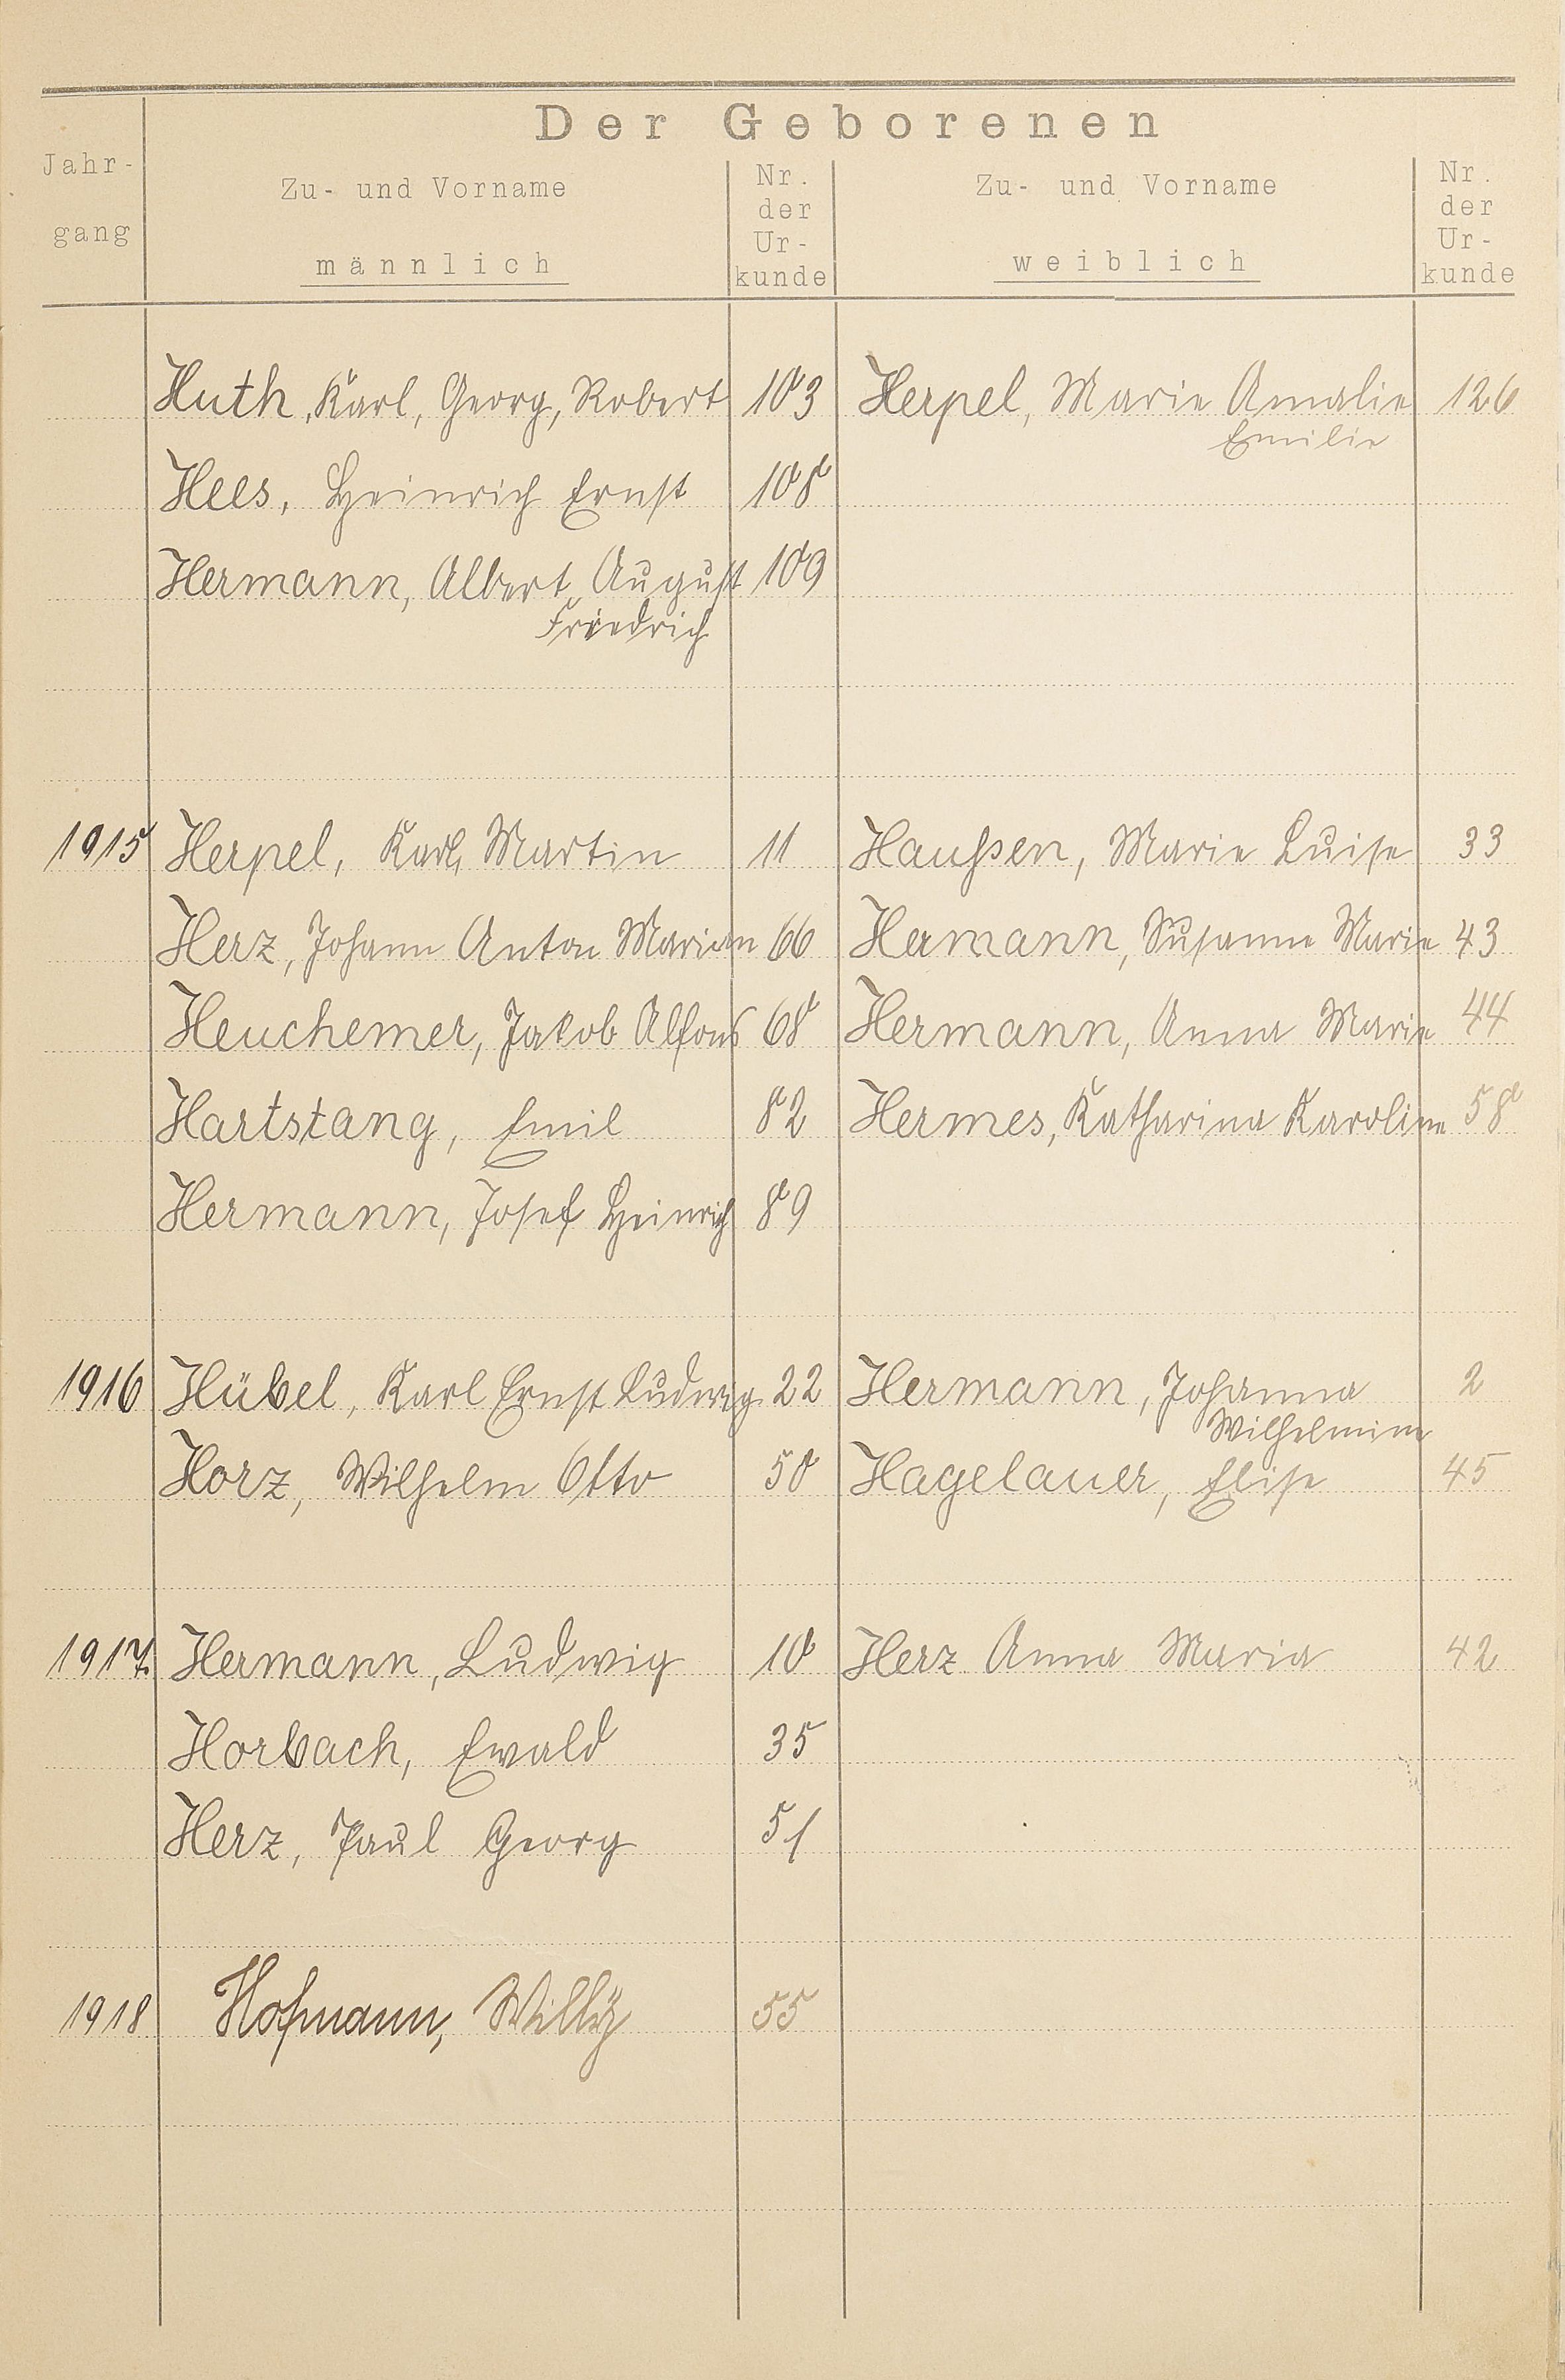 Der Geborenen
Jahr-
gang
Zu- und Vorname
männlich
Nr.
der
Ur-
kunde
Zu- und Vorname
weiblich
Nr.
der
Ur-
kunde
Huth, Karl, Georg, Robert 103 Herpel, Marie Amalie 126
Emilie
Hees, Heinrich Ernst 108
Hermann, Albert, August 109
Friedrich
1915 Herpel, Karl, Martin 11 Haußen, Marie Luise 33
Herz, Johann Anton Marian 66 Hermann, Susanne Marie 43
Heuchemer, Jakob Alfons 68 Hermann, Anna Marie 44
Hartstang, Emil 82 Hermes, Katharina Karoline 58
Hermann, Josef Heinrich 89
1916 Hübel, Karl Ernst Ludwig 22 Hermann, Johanna 2
Wilhelmine
Horz, Wilhelm Otto 50 Hagelauer, Elise 45
1917. Hermann, Ludwig 10 Herz Anna Maria 42
Horbach, Ewald 35
Herz, Paul Georg 51
1918 Hofmann, Willÿ 55